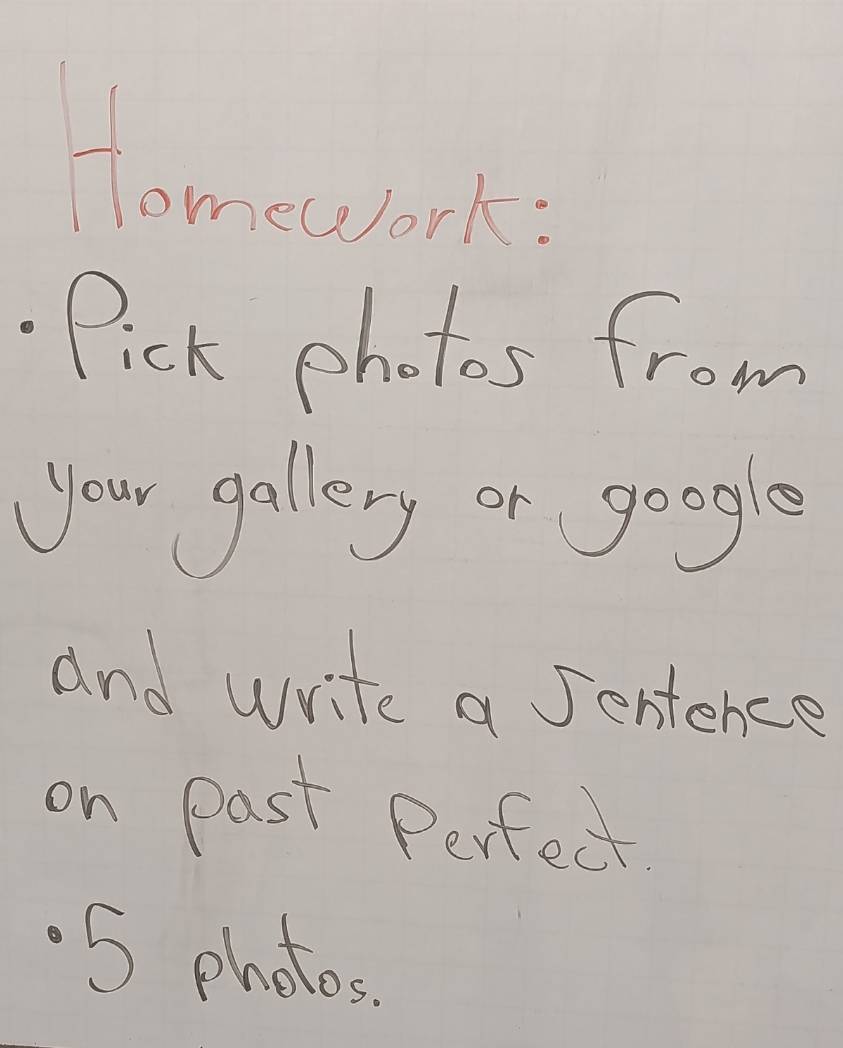 Homework:
• Pick photos from
your gallery or google
and write a sentence
on past Perfect.
• 5 photos.